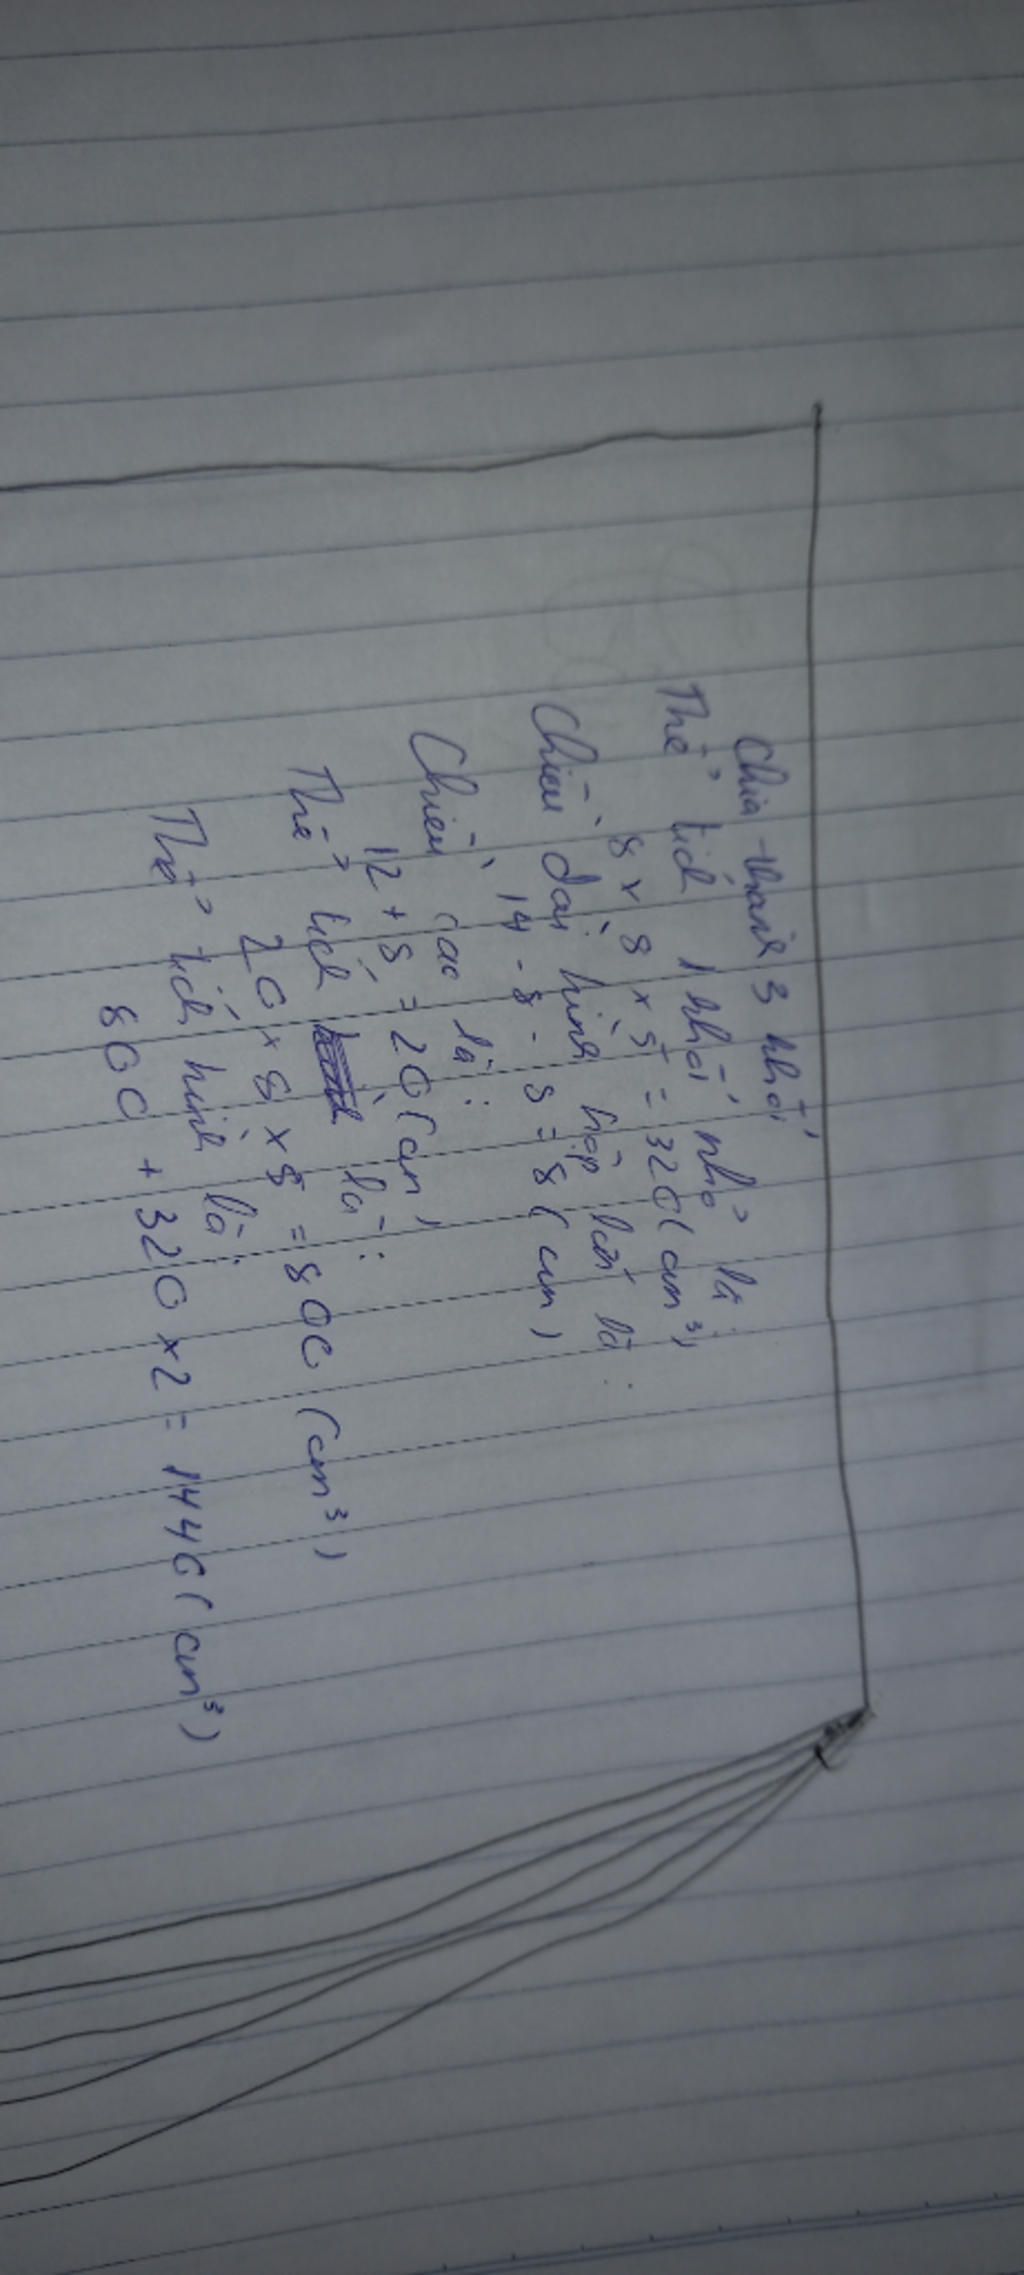 Chia thành 3 khối
Thể tích 1 khối nhỏ là
8 x 8 x 5 = 320 (cm³)
Chiều dài hình hộp lớn là :
14 - 8 - 8 = 8 (cm)
Chiều cao là :
12 + 8 = 20 (cm)
Thể tích là :
20 x 8 x 5 = 800 (cm³)
Thể tích hình là :
800 + 320 x 2 = 1440 (cm³)